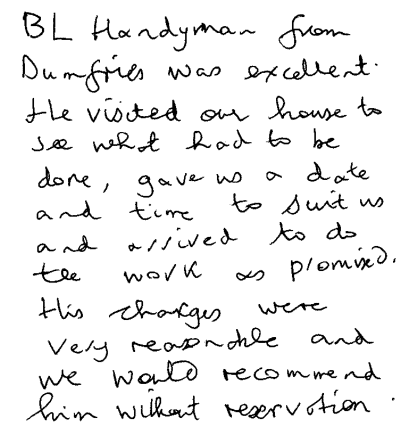 BL Handyman from
Dumfries was excellent.
He visited our house to
see what had to be
done, gave us a date
and time to suit us
and arrived to do
the work as promised.
His charges were
very reasonable and
we would recommend
him without reservation.